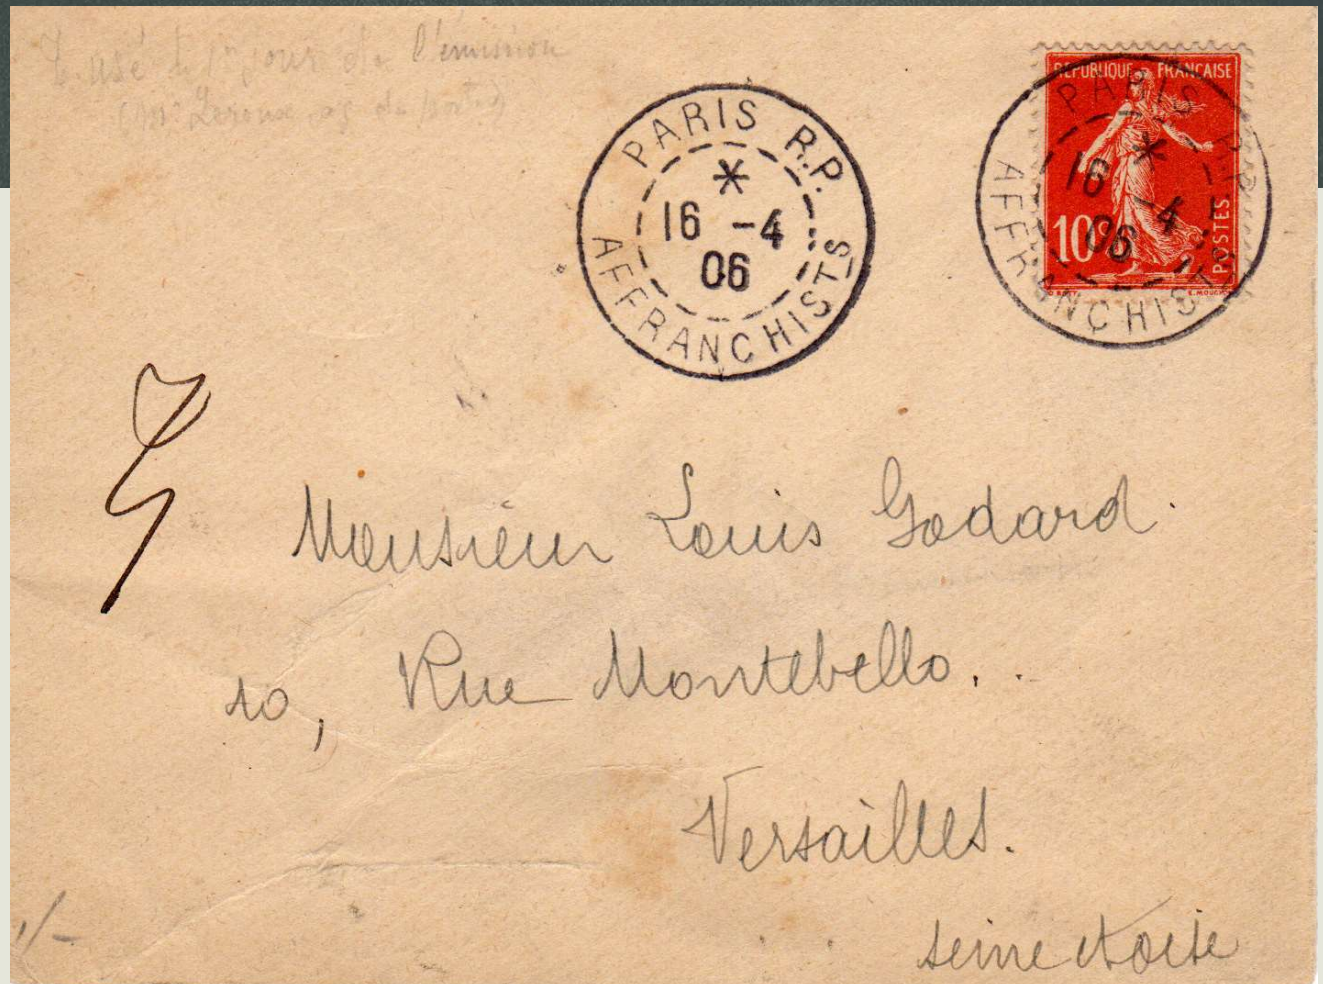 T. usé le 1er jour de l'émission
(Mr Leroux, ag. des postes)
PARIS R.P.
16 -4
06
AFFRANCHISTS
REPUBLIQUE FRANÇAISE
10c
POSTES
PARIS R.P.
16 -4
06
AFFRANCHISTS
Monsieur Louis Godard.
10, Rue Montebello.
Versailles.
Seine et Oise